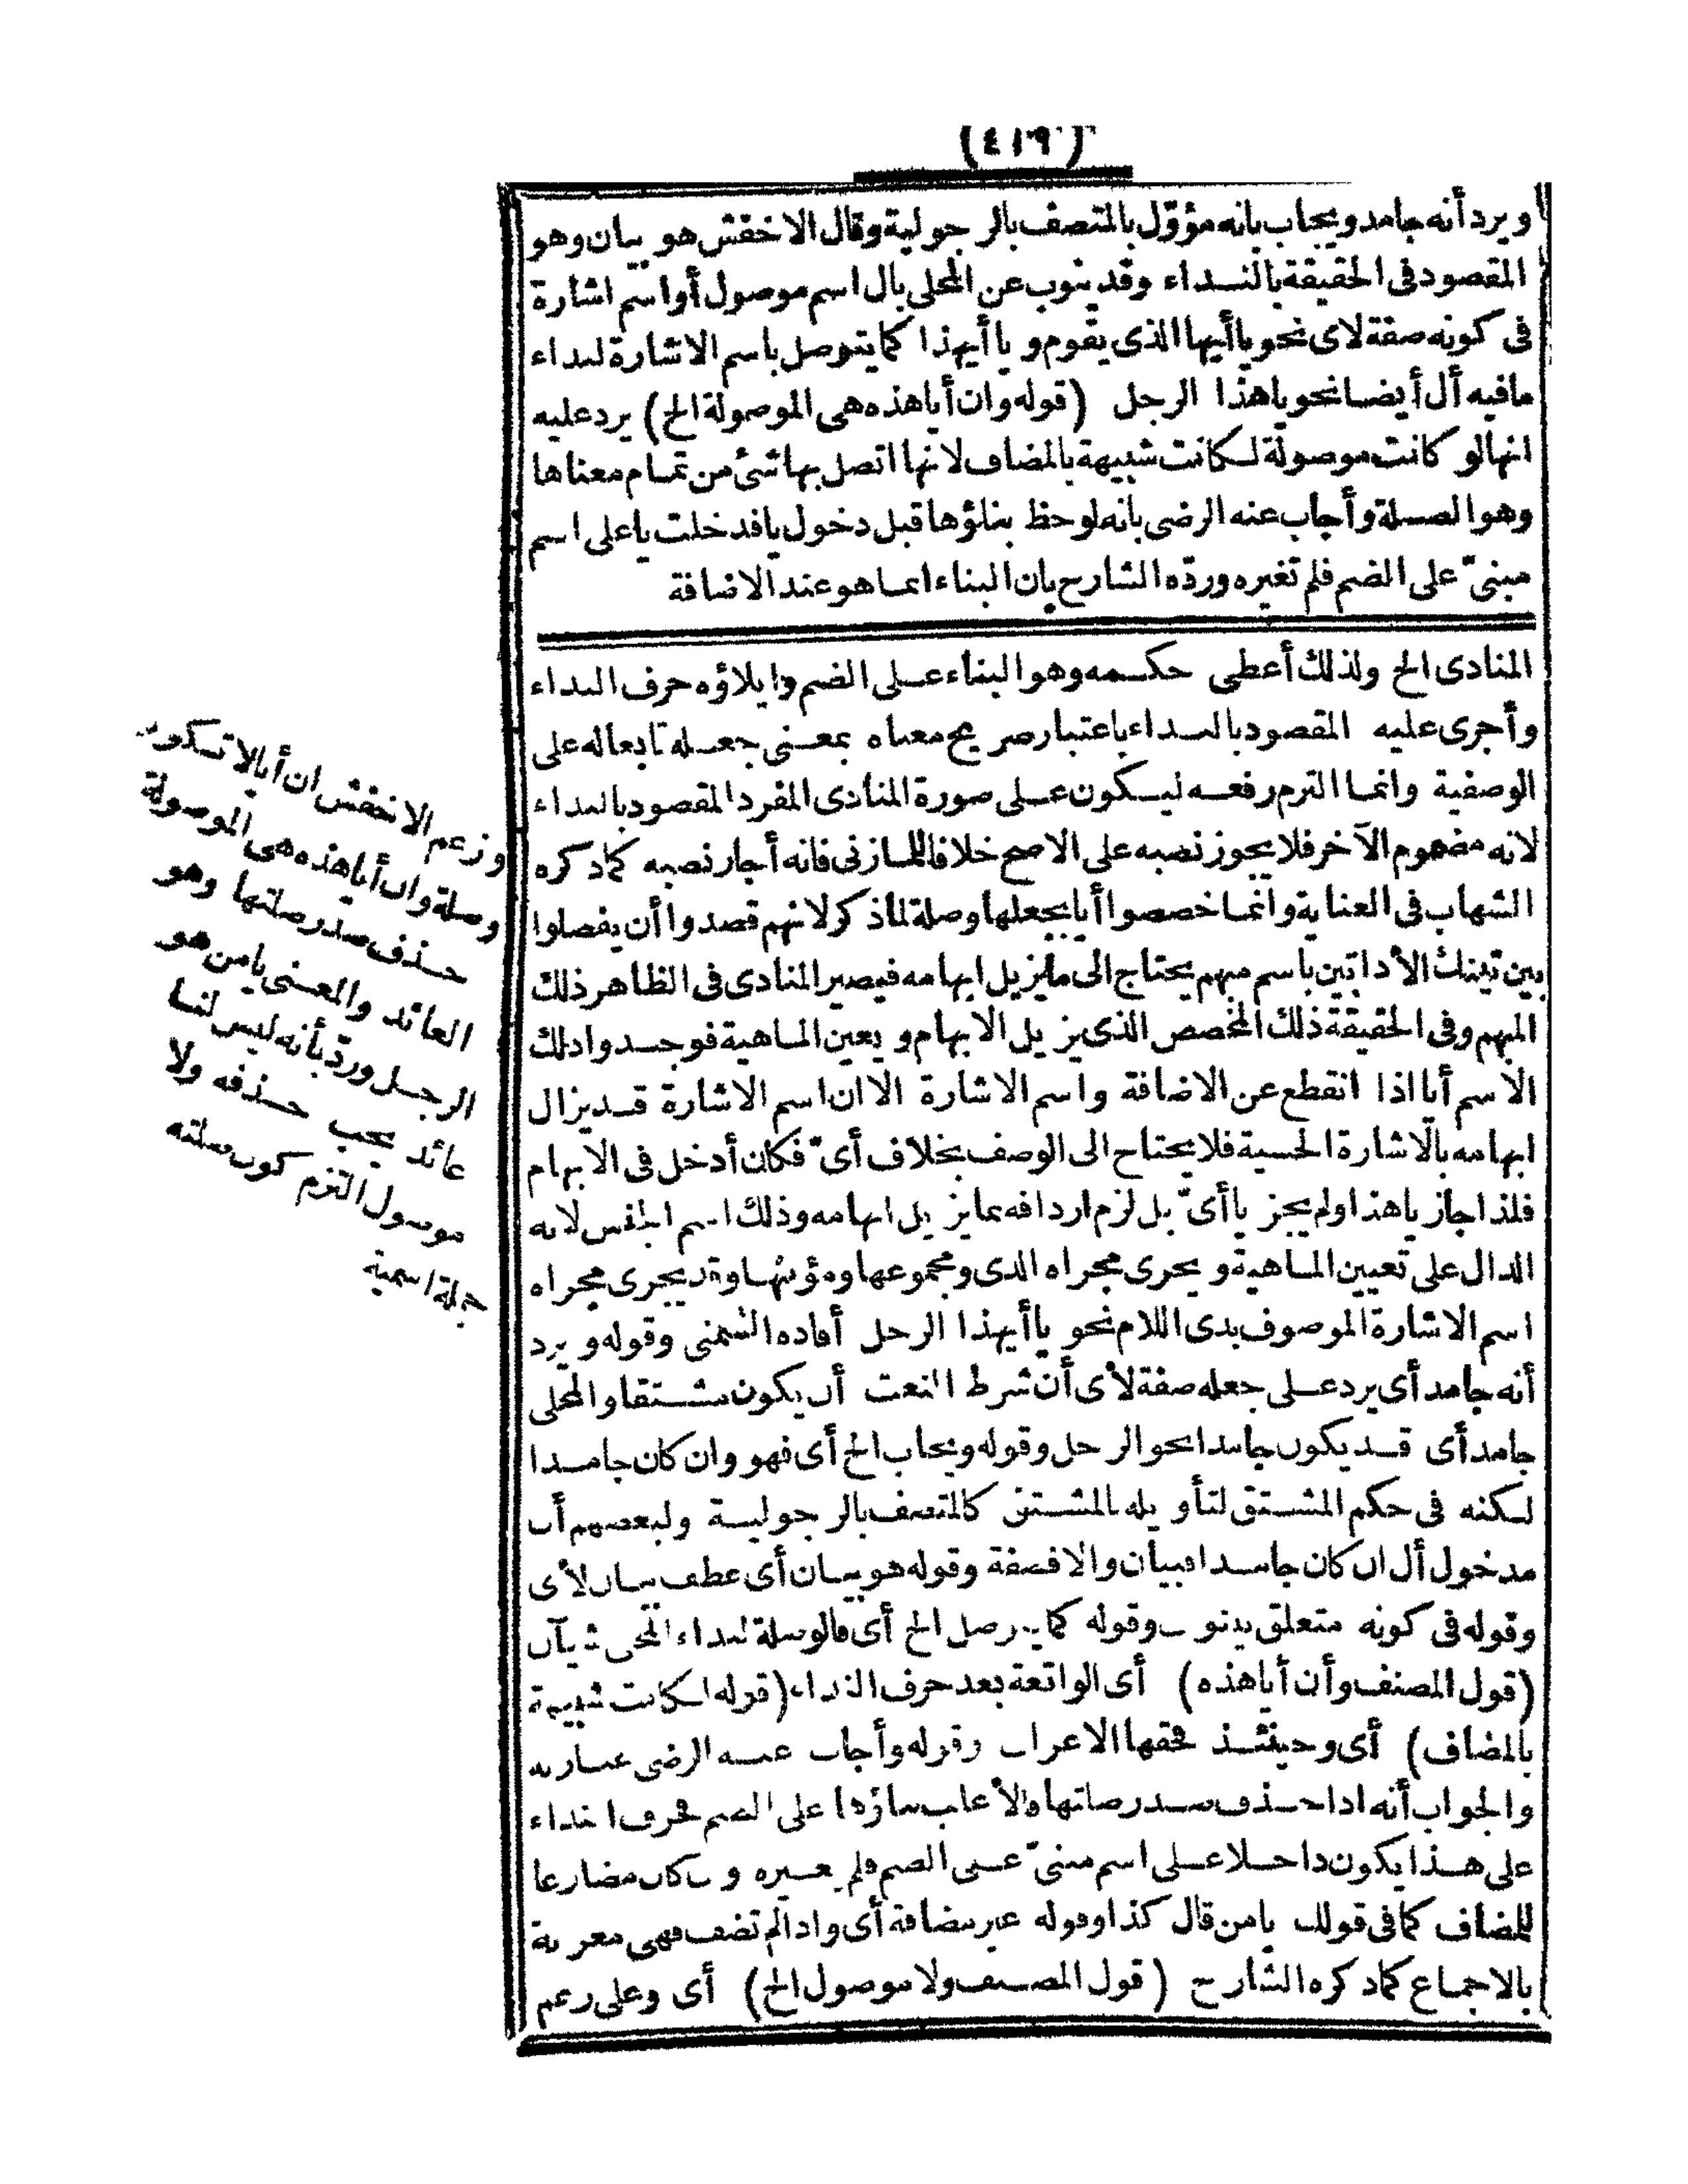 (٤١٩)
ويرد أنه جامد ويجاب بانه مؤوّل بالمتصف بالرجولية وقال الاخفش هو بيان وهو
المقصود فى الحقيقة بالنداء وقد ينوب عن المحلى بال اسم موصول أواسم اشارة
فى كونه صفة لاى نحو ياأيها الذى يقوم و ياأيهذا كما يتوصل باسم الاشارة لنداء
مافيه أل أيضا نحو ياهذا الرجل (قوله وان أيا هذه هى الموصولة الخ) يرد عليه
انها لو كانت موصولة لكانت شبيهة بالمضاف لانها اتصل بها شئ من تمام معناها
وهو الصلة وأجاب عنه الرضى بانه لوحظ بناؤها قبل دخول يا فدخلت يا على اسم
مبنىّ على الضم فلم تغيره وردّه الشارح بان البناء انما هو عند الاضافة
المنادى الخ ولذلك أعطى حكمه وهو البناء على الضم وايلاؤه حرف النداء
وأجرى عليه المقصود بالنداء باعتبار صريح معناه بمعنى جعله تابعا له على
الوصفية وانما التزم رفعه ليكون على صورة المنادى المفرد المقصود بالنداء
لانه مفهوم الآخر فلا يجوز نصبه على الاصح خلافا للمازنى فانه أجاز نصبه كما ذكره
الشهاب فى العناية وانما خصصوا أيا بجعلها وصلة لما ذكر لانهم قصدوا أن يفصلوا
بين تينك الأداتين باسم مبهم يحتاج الى ما يزيل ابهامه فيصير المنادى فى الظاهر ذلك
المبهم وفى الحقيقة ذلك المخصص الذى يزيل الابهام ويعين الماهية فوجدوا ذلك
الاسم أيا اذا انقطع عن الاضافة واسم الاشارة الا ان اسم الاشارة قد يزال
ابهامه بالاشارة الحسية فلا يحتاج الى الوصف بخلاف أىّ فكان أدخل فى الابهام
فلذا جاز ياهذا ولم يجز ياأىّ بل لزم اردافه بما يزيل ابهامه وذلك اسم الجنس لانه
الدال على تعيين الماهية ويجرى مجراه الذى ومجموعها ومؤنثها وقد يجرى مجراه
اسم الاشارة الموصوف بذى اللام نحو ياأيهذا الرجل أفاده الشمنى وقوله ويرد
أنه جامد أى يرد على جعله صفة لأى أن شرط النعت أن يكون مشتقا والمحلى
جامد أى قد يكون جامدا نحو الرجل وقوله ويجاب الخ أى فهو وان كان جامدا
لكنه فى حكم المشتق لتأويله بالمشتق كالمتصف بالرجولية ولبعضهم أن
مدخول أل ان كان جامدا فبيان والا فصفة وقوله هو بيان أى عطف بيان لأى
وقوله فى كونه متعلق بينوب وقوله كما يتوصل الخ أى فالوصلة لنداء المحلى شيآن
(قول المصنف وأن أيا هذه) أى الواقعة بعد حرف النداء (قوله لكانت شبيهة
بالمضاف) أى وحينئذ فحقها الاعراب وقوله وأجاب عنه الرضى عبارته
والجواب أنه اذا حذف صدر صلتها فالأغلب بناؤها على الضم فحرف النداء
على هذا يكون داخلا على اسم مبنىّ على الضم فلم يغيره وان كان مضارعا
للمضاف كما فى قولك يامن قال كذا وقوله غير مضافة أى واذا لم تضف فهى معربة
بالاجماع كما ذكره الشارح (قول المصنف ولا موصول الخ) أى وعلى زعم
وزعم الاخفش ان أيا لا تكون
وصلة وان أيا هذه هى الموصولة
حذف صدر صلتها وهو
العائد والمعنى يامن هو
الرجل وردّ بأنه ليس لنا
عائد يجب حذفه ولا
موصول التزم كون صلته
جملة اسمية